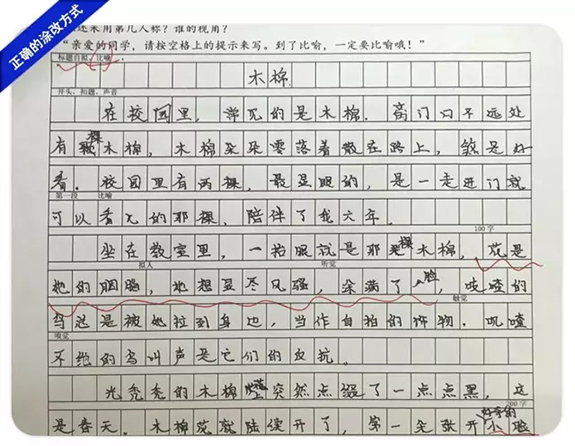 正确的涂改方式
还采用第几人称?谁的视角?
“亲爱的同学,请按空格上的提示来写。到了比喻,一定要比喻哦!”
标题自拟,比喻
木棉
开头、扣题、声音
在校园里,常见的是木棉。离门口不远处
有棵木棉,木棉朵朵零落着散在路上,煞是好
看。校园里有两棵,最显眼的,是一走进门就
第一段 比喻
可以看见的那棵,陪伴了我六年。
100字
坐在教室里,一抬眼就是那棵木棉,花是
拟人 听觉
她的胭脂,她想显尽风骚,涂满了脸,喳喳的
触觉
鸟也是被她拉到身边,当作自拍的饰物,叽喳
嗅觉
不绝的鸟叫声是它们的反抗。
光秃秃的木棉 突然点缀了一点点黑,这
200字
是春天。木棉花就陆续开了,第一朵张开 小脸